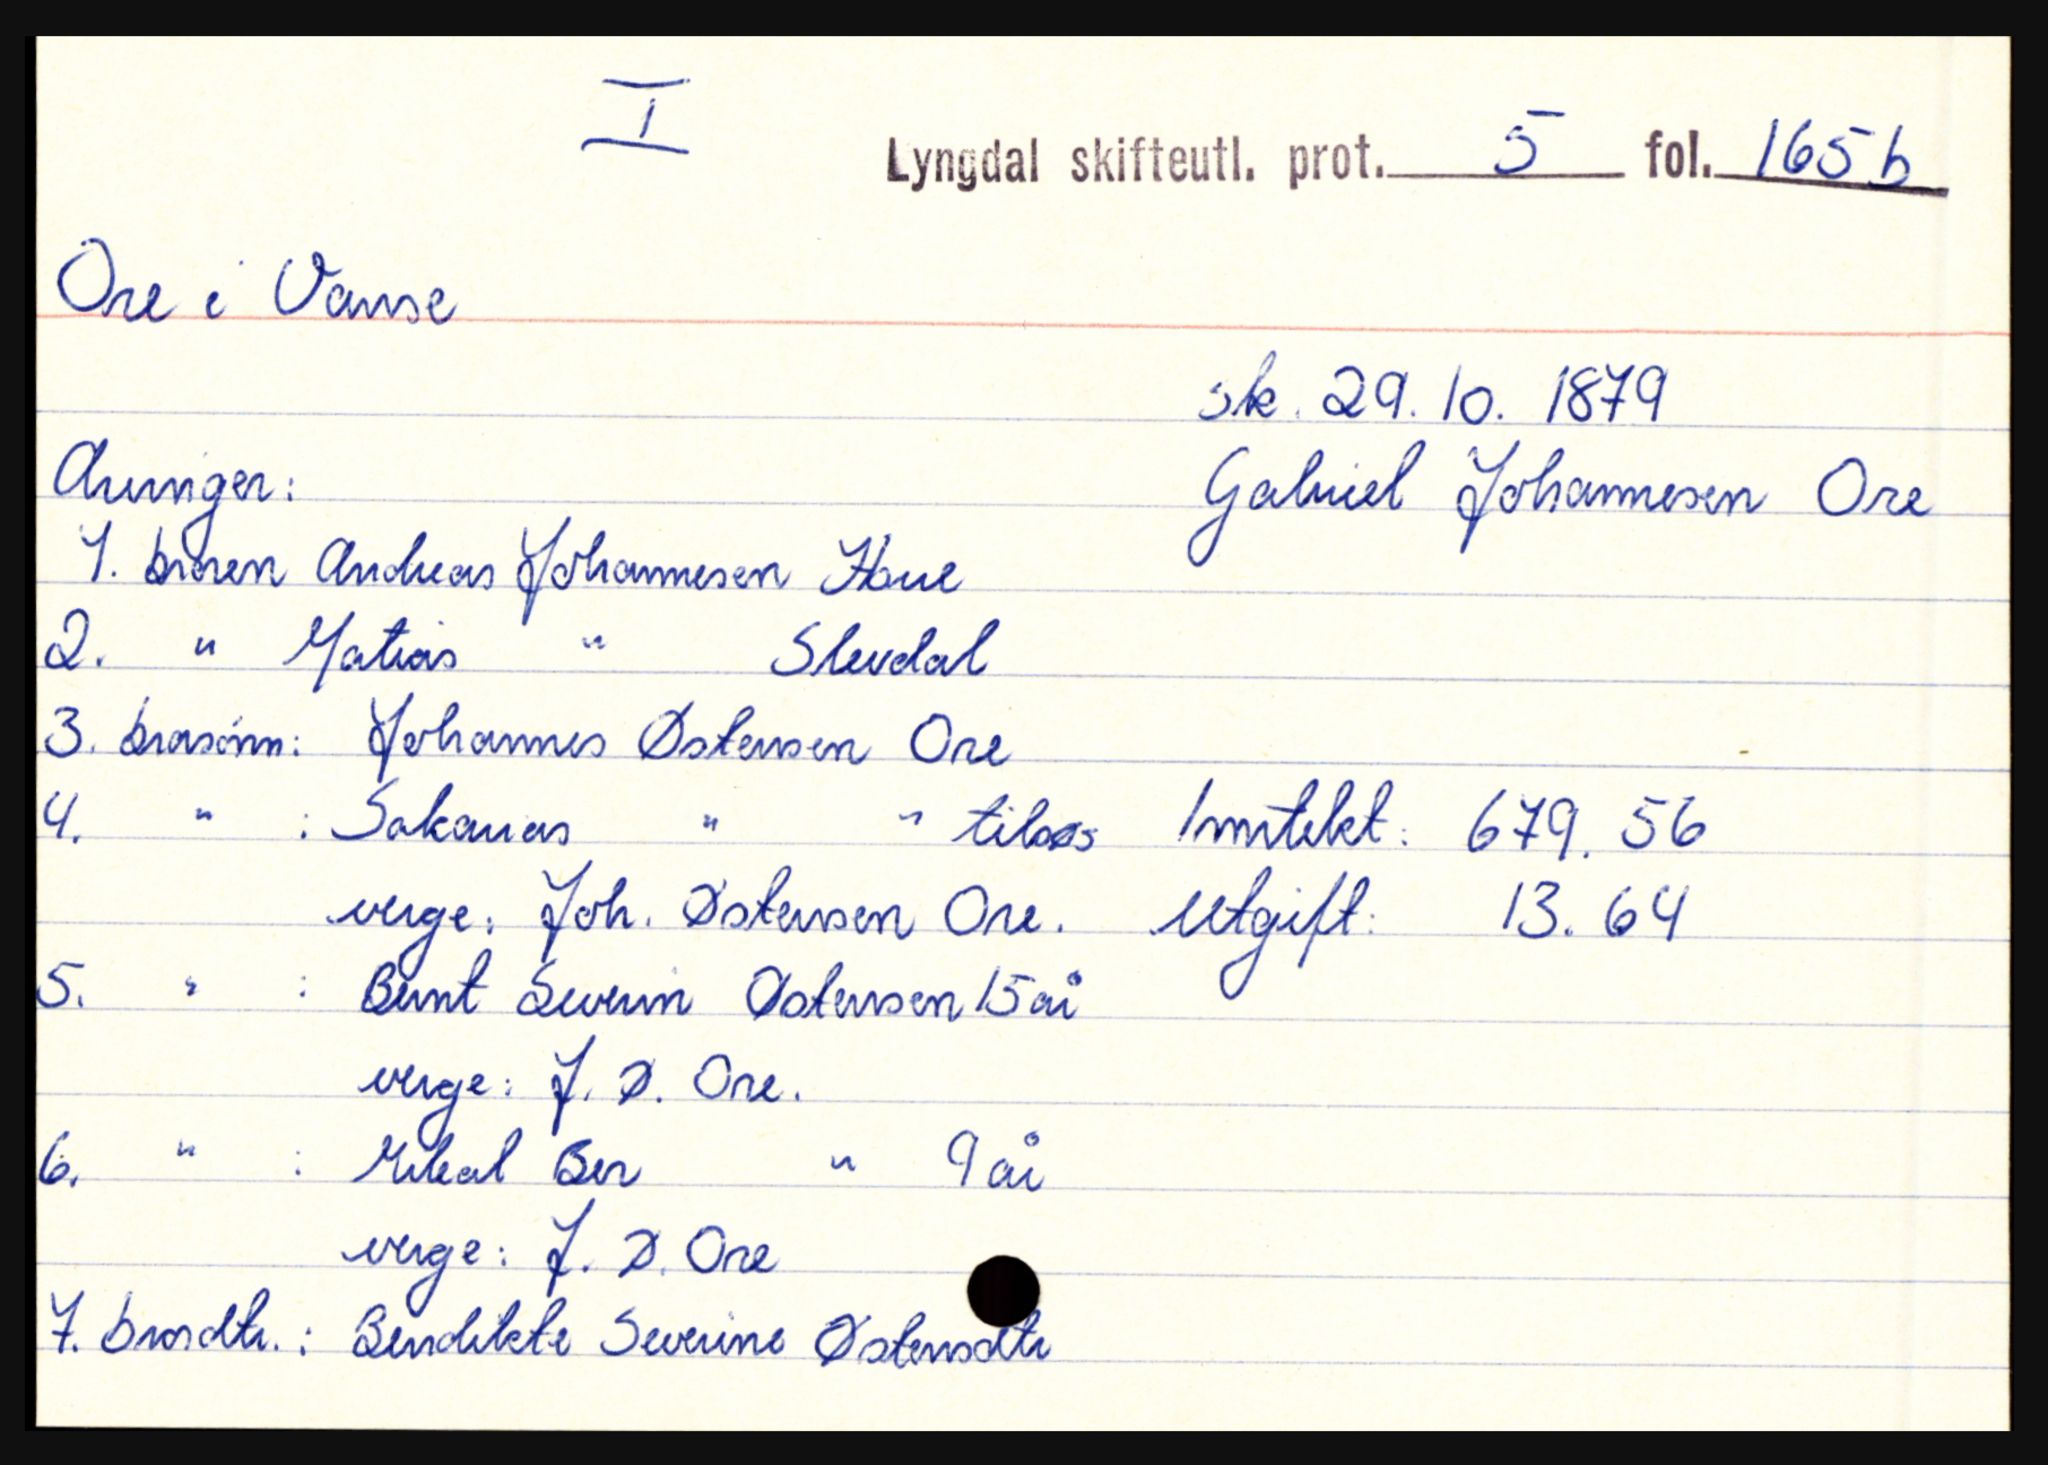 I
Lyngdal skifteutl. prot. 5 fol. 165b
Ore i Vanse
sk. 29.10. 1879
Arvinger: Gabriel Johannesen Ore
1. broren Andreas Johannesen Haue
2. " Matias " Slevdal
3. brosønn: Johannes Østensen Ore
4. " : Sakarias " " tilsøs Inntekt: 679.56
verge: Joh. Østensen Ore. Utgift: 13.64
5. " : Bernt Severin Østensen 15 år
verge: J. Ø. Ore.
6. " : Mikal Ber " 9 år
verge: J. Ø. Ore
7. brordtr.: Bendikte Severine Østensdtr